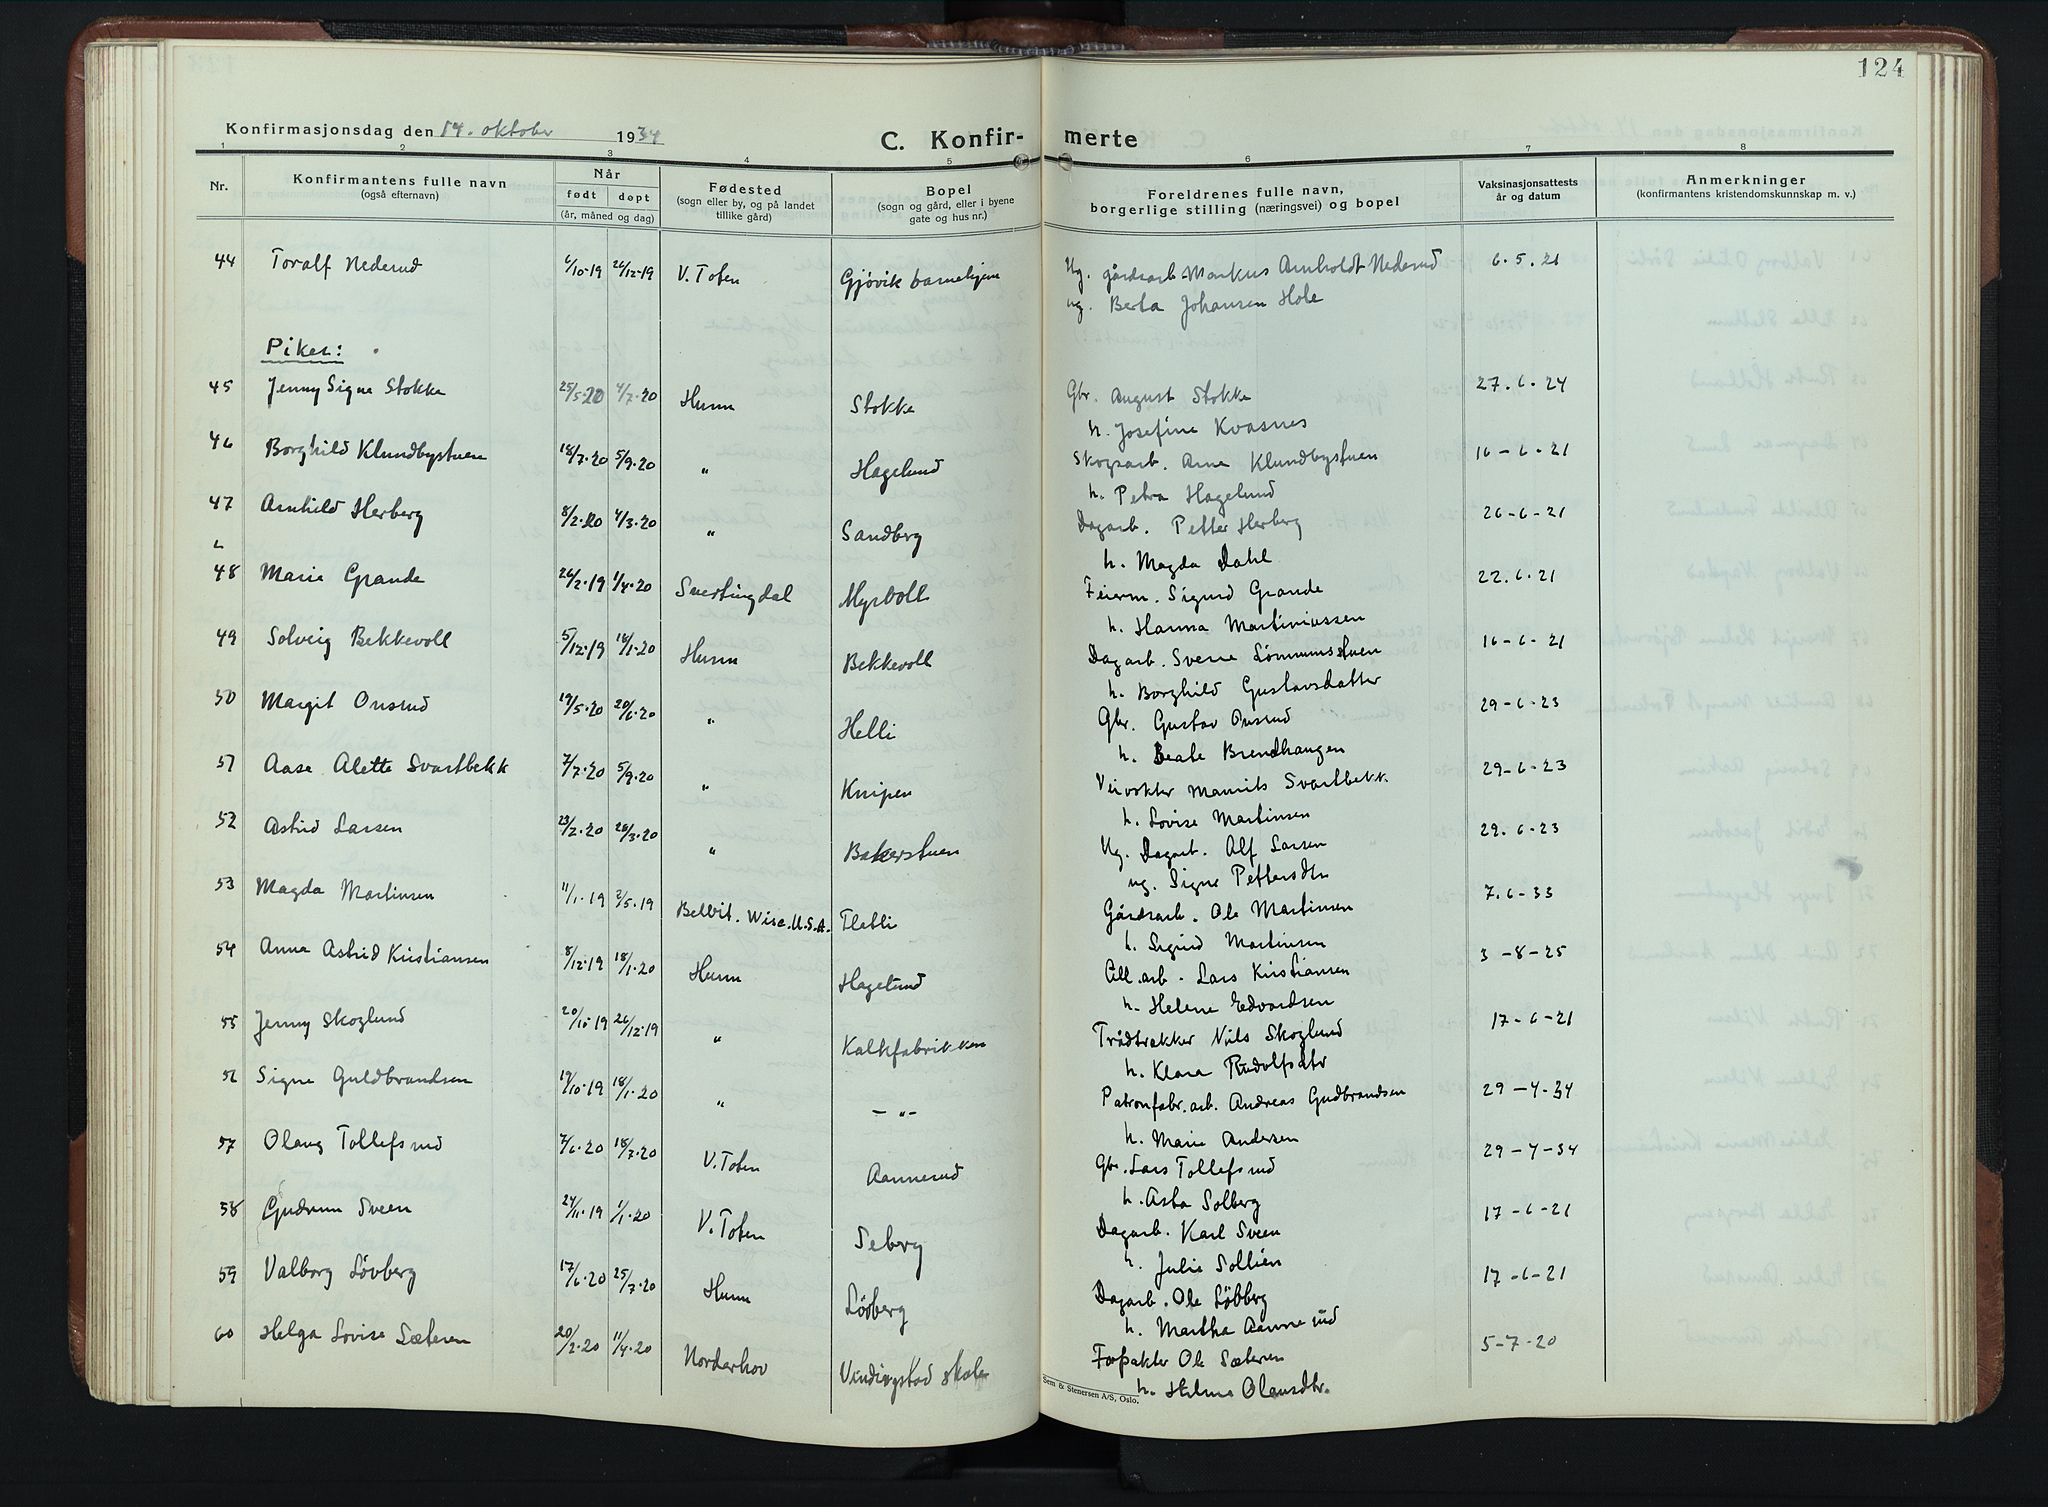 124
Konfirmasjonsdag den 14. oktober 1934
C. Konfir- merte
1 2 3 4 5 6 7 8
Nr. Konfirmantens fulle navn (også efternavn) Når født døpt (år, måned og dag) Fødested (sogn eller by, og på landet tillike gård) Bopel (sogn og gård, eller i byene gate og hus nr.) Foreldrenes fulle navn, borgerlige stilling (næringsvei) og bopel Vaksinasjonsattests år og datum Anmerkninger (konfirmantens kristendomskunnskap m. v.)
44 Toralf Nederud 6/10-19 26/12-19 V. Toten Gjøvik barnehjem Ug. gårdsarb. Markus Arnholdt Nederud 6.5.21
ug. Berta Johansen Hole
Piker:
45 Jenny Signe Stokke 25/5-20 4/7-20 Hunn Stokke Gbr. August Stokke 27.6.24
h. Josefine Kvasnes
46 Borghild Klundbystuen 18/7-20 5/9-20 " Hagelund Skogsarb. Arne Klundbystuen 16-6-21
h. Petra Hagelund
47 Arnhild Herberg 8/2-20 4/3-20 " Sandberg Dagarb. Petter Herberg 26-6-21
h. Magda Dahl
48 Marie Grande 26/2-19 1/4-20 Snertingdal Myrvoll Feierm. Sigurd Grande 22.6.21
h. Hanna Martiniussen
49 Solveig Bekkevoll 5/12-19 18/1-20 Hunn Bekkevoll Dagarb. Sverre Lømmunstuen 16-6-21
h. Borghild Gustavsdatter
50 Margit Onsrud 19/5-20 20/6-20 " Helli Gbr. Gustav Onsrud 29-6-23
h. Beate Brendhaugen
51 Aase Alette Svartbekk 7/7-20 5/9-20 " Knipen Veivokter Maurits Svartbekk 29-6-23
h. Lovise Martinsen
52 Astrid Larsen 23/2-20 28/3-20 " Bakerstuen Ug. Dagarb. Alf Larsen 29.6-23
ug. Signe Pettersdtr
53 Magda Martinsen 11/1-19 2/5-19 Belvit. Wisc. U.S.A. Fletli Gårdsarb. Ole Martinsen 7.6-33
h. Sigrid Martinsen
54 Anna Astrid Kristiansen 8/12-19 18/1-20 Hunn Hagelund Cell.arb. Lars Kristiansen 3-8-25
h. Helene Edvardsen
55 Jenny Skoglund 20/10-19 26/12-19 " Kalkfabrikken Trådtrekker Nils Skoglund 17-6-21
h. Klara Rudolfsdtr
56 Signe Guldbrandsen 19/10-19 18/1-20 " -"- Patronfabr.arb. Andreas Gudbrandsen 29-4-34
h. Marie Andersen
57 Olaug Tollefsrud 7/6-20 18/7-20 V. Toten Aannerud Gbr. Lars Tollefsrud 29-4-34
h. Asta Solberg
58 Gudrun Sveen 24/11-19 1/1-20 V. Toten Seberg Dagarb. Karl Sveen 17-6-21
h. Julie Sollien
59 Valborg Lövberg 17/6-20 25/7-20 Hunn Lövberg Dagarb. Ole Lövberg 17-6-21
h. Martha Aannerud
60 Helga Lovise Sæteren 20/2-20 11/4-20 Norderhov Vindingstad skole Forpakter Ole Sæteren 5-7-20
h. Helma Olausdtr.
Sem & Stenersen A/S, Oslo.